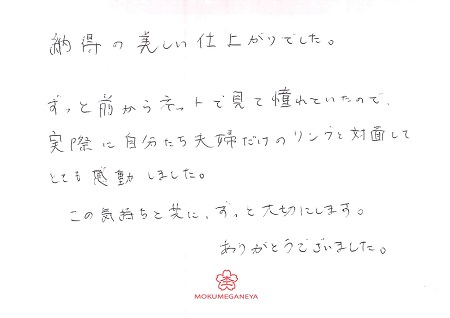 納得の美しい仕上がりでした。
ずっと前からネットで見て憧れていたので、
実際に自分たち夫婦だけのリングと対面して
とても感動しました。
この気持ちと共に、ずっと大切にします。
ありがとうございました。
MOKUMEGANEYA